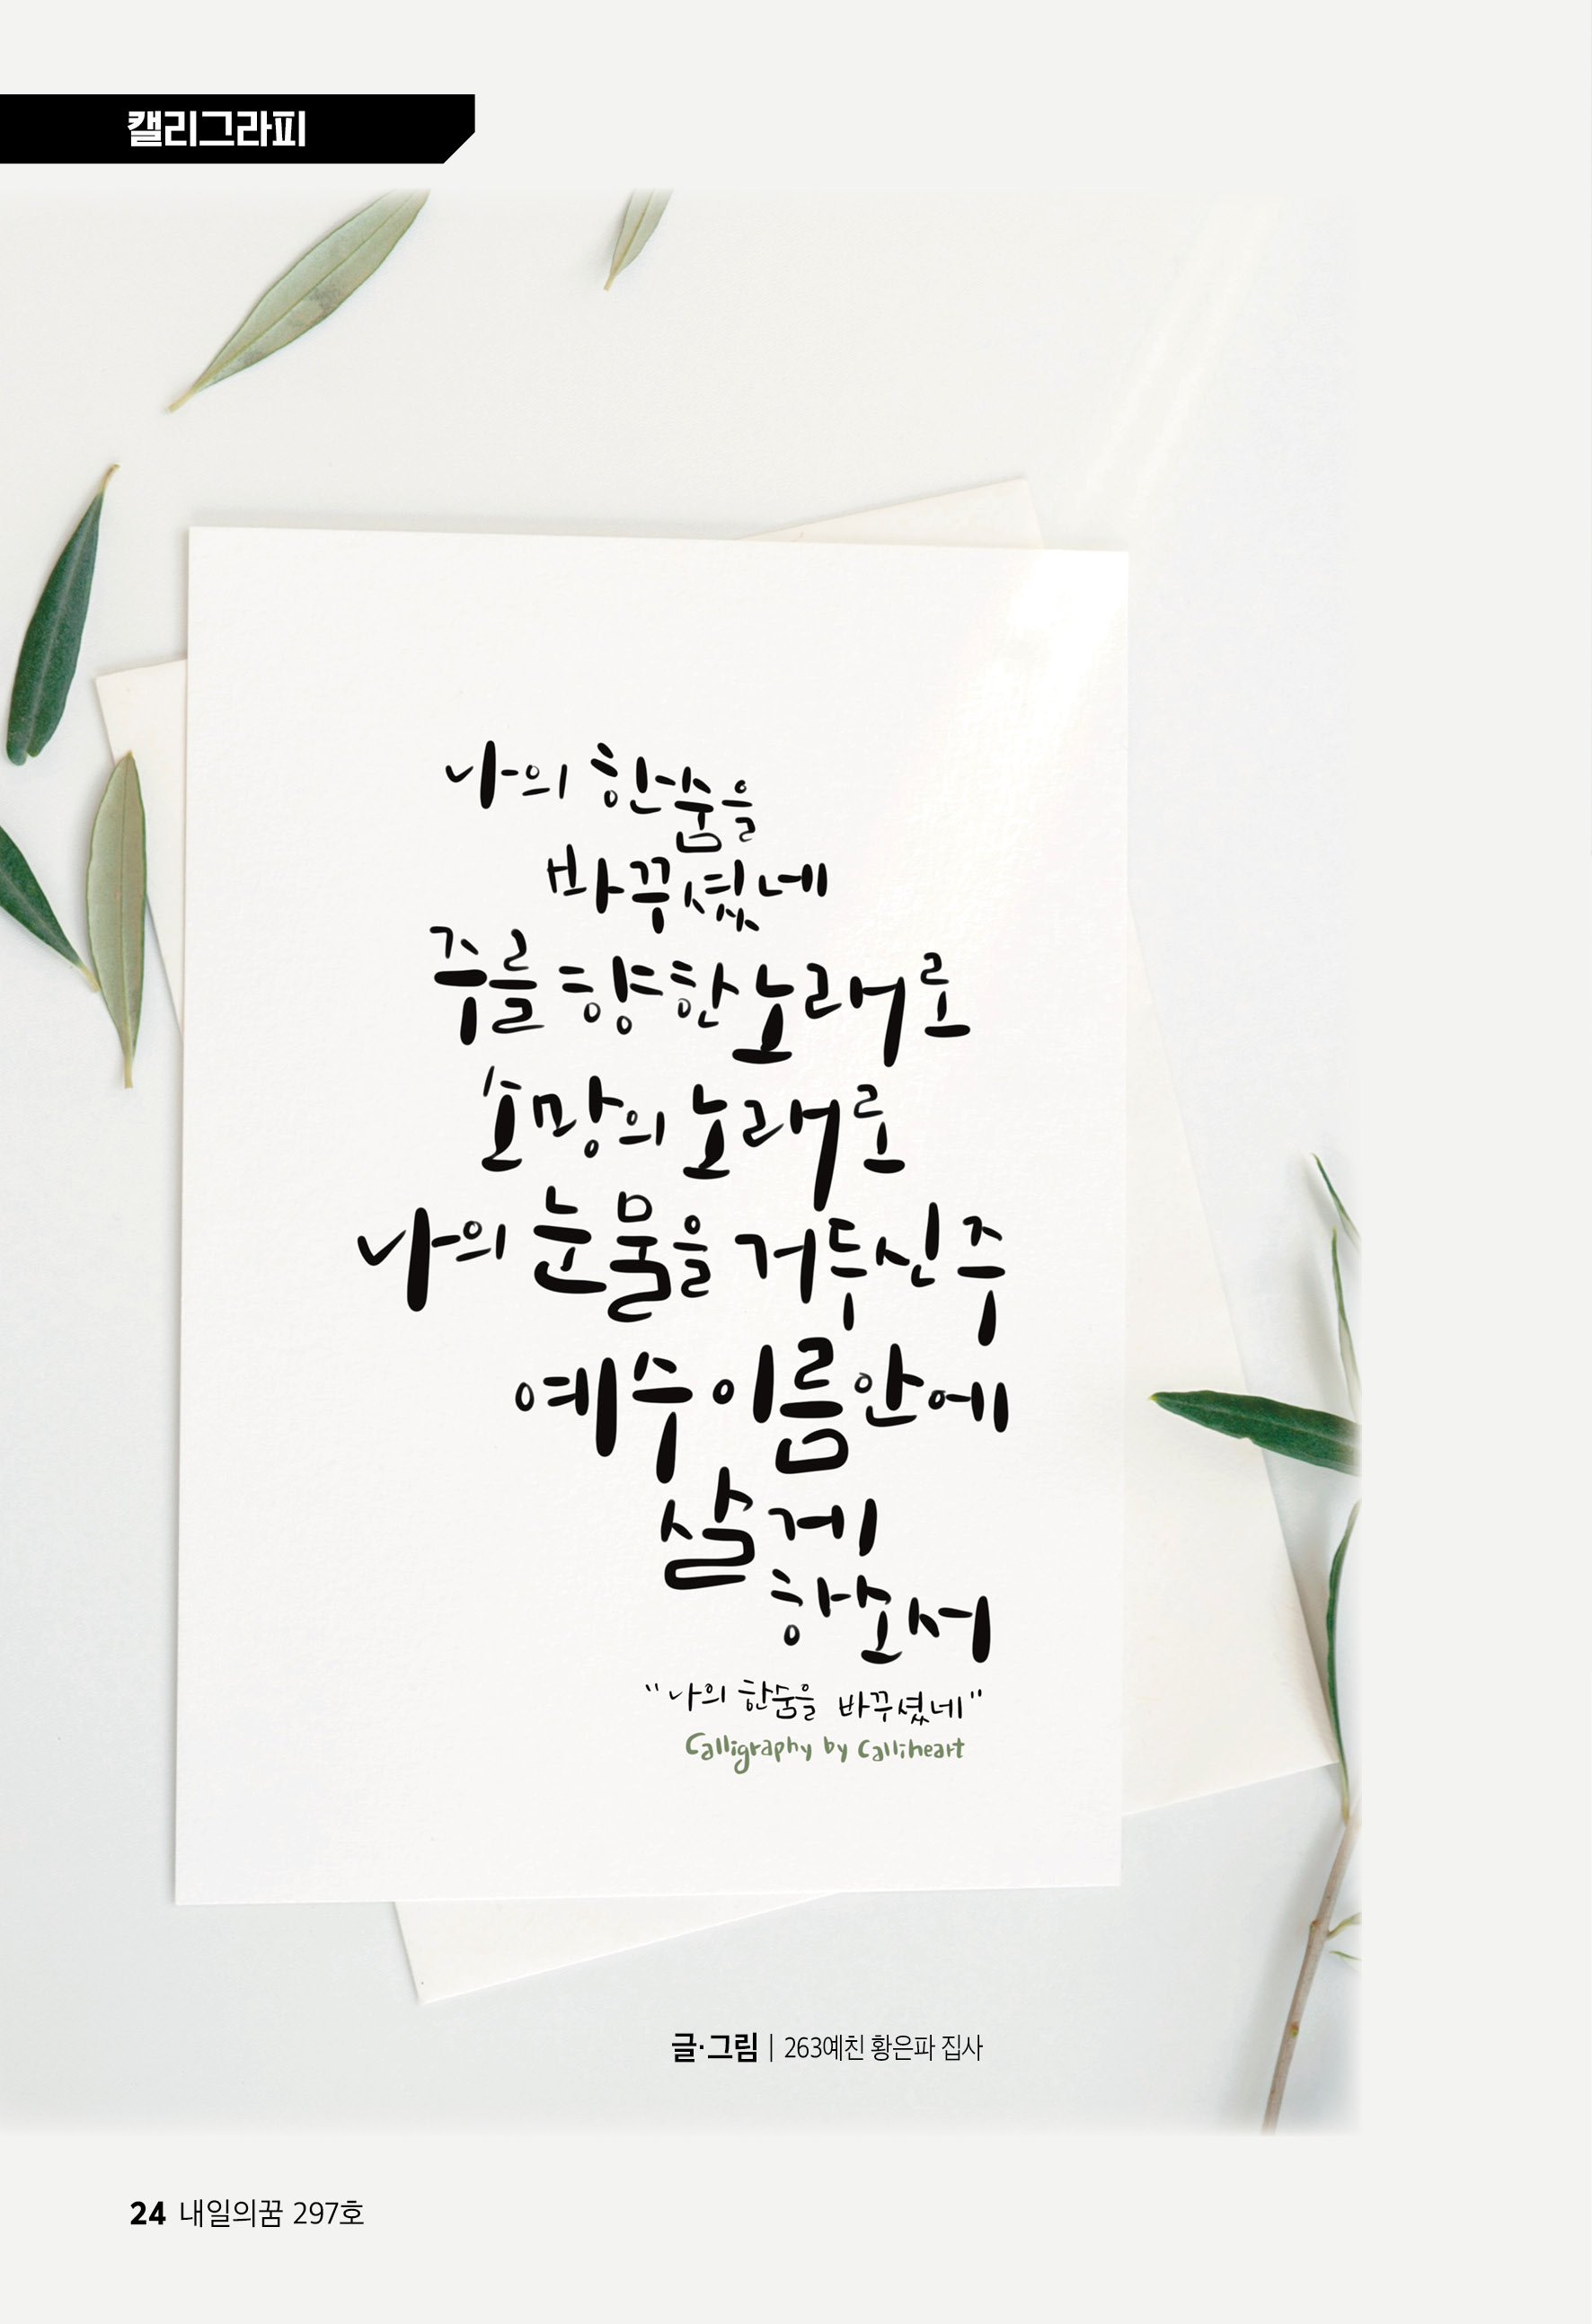 캘리그라피
나의 한숨을
바꾸셨네
주를 향한 노래로
소망의 노래로
나의 눈물을 거두신 주
예수 이름 안에
살게
하소서
"나의 한숨을 바꾸셨네"
Calligraphy by Calliheart
글·그림 | 263예친 황은파 집사
24 내일의꿈 297호